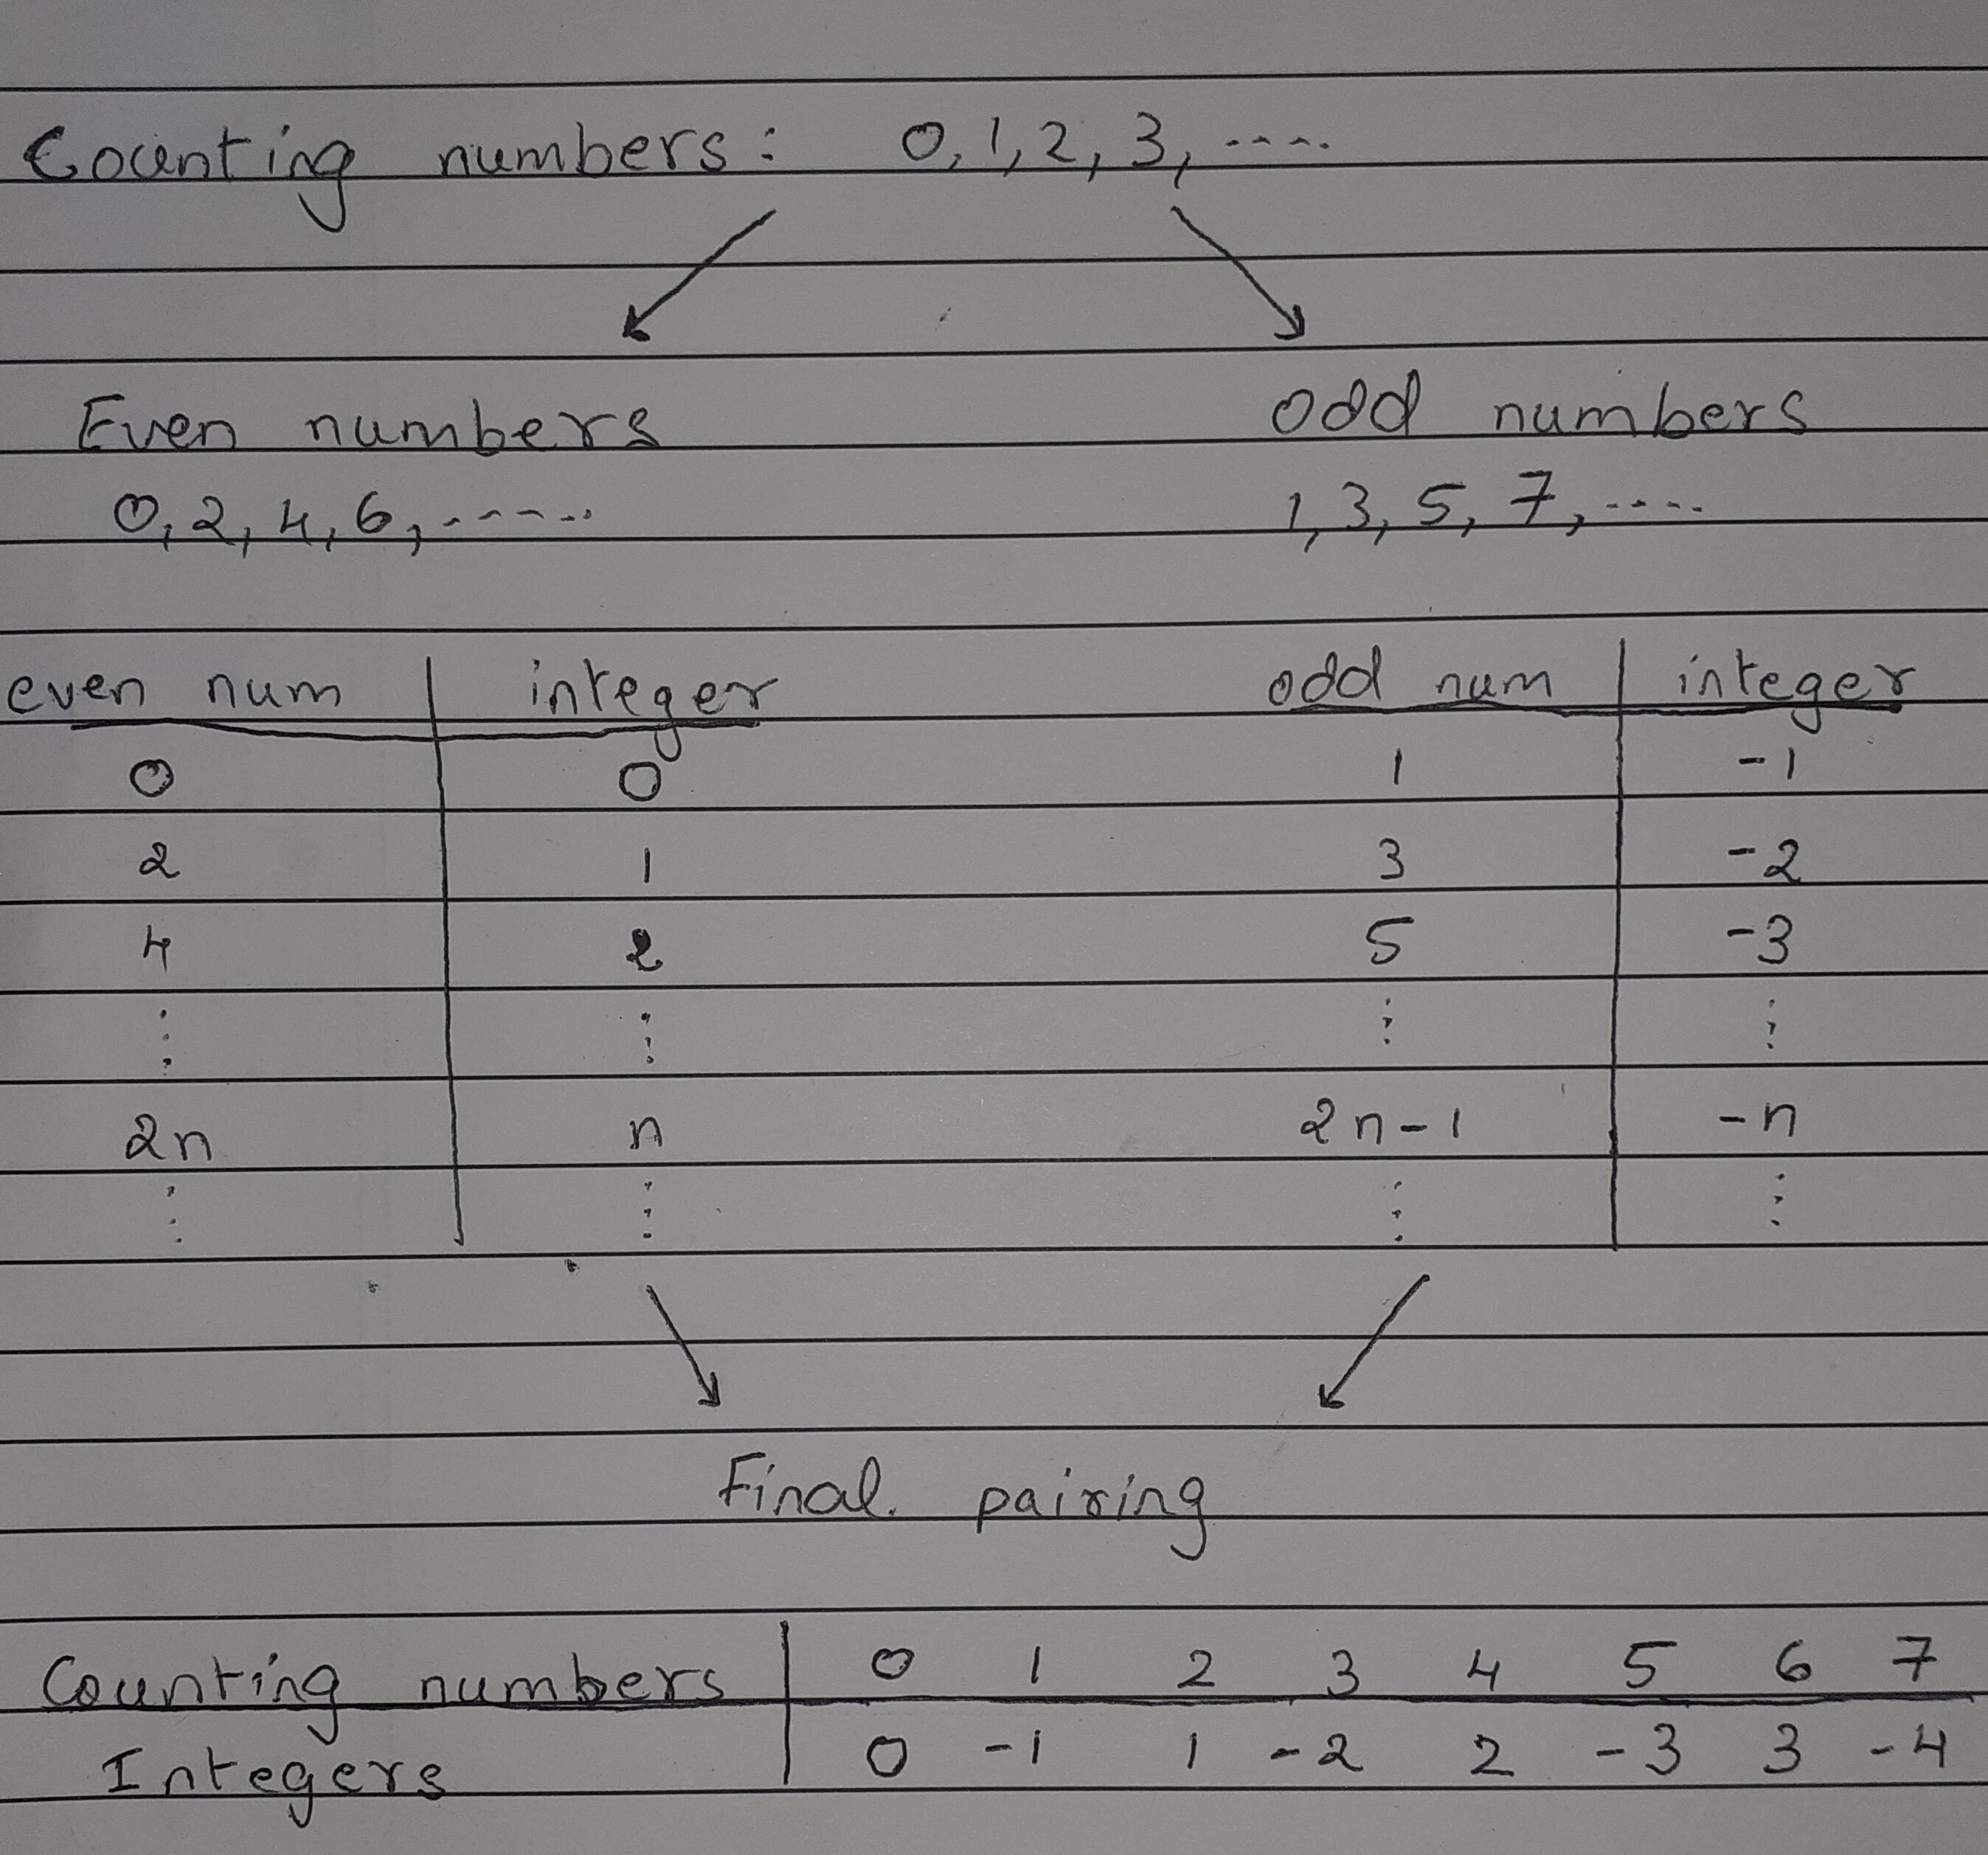 Counting numbers: 0, 1, 2, 3, ....
Even numbers odd numbers
0, 2, 4, 6, ...... 1, 3, 5, 7, ....
even num integer odd num integer
0 0 1 -1
2 1 3 -2
4 2 5 -3
⋮ ⋮ ⋮ ⋮
2n n 2n-1 -n
⋮ ⋮ ⋮ ⋮
Final. pairing
Counting numbers 0 1 2 3 4 5 6 7
Integers 0 -1 1 -2 2 -3 3 -4